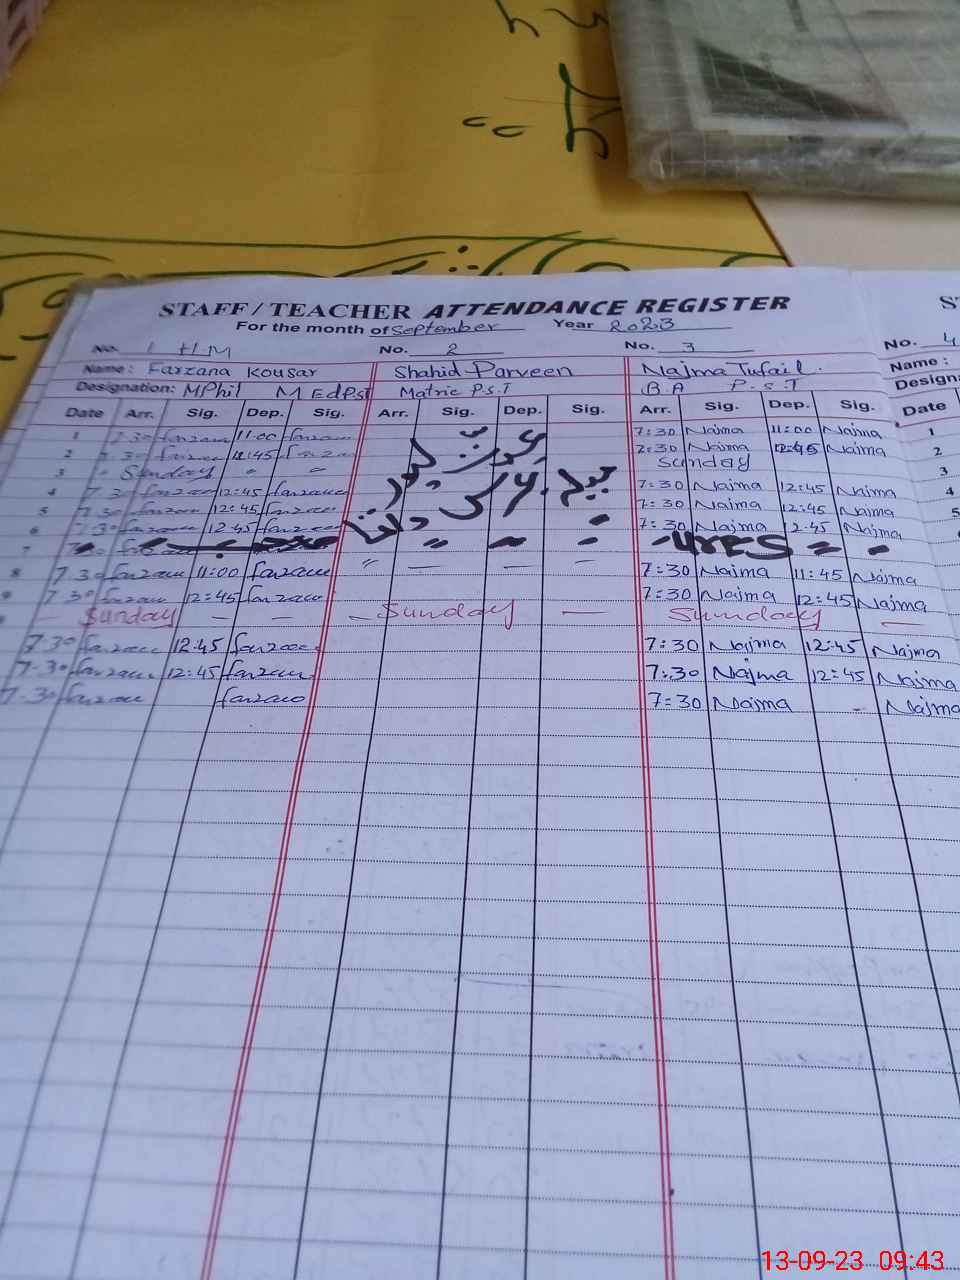 STAFF / TEACHER ATTENDANCE REGISTER
For the month of September Year 2023
No. 1 H-M No. 2 No. 3 No. 4
Name : Farzana Kousar Shahid Parveen Najma Tufail . Name :
Designation: MPhil M Ed PST Matric P.S.T B.A P.S.T
Date Arr. Sig. Dep. Sig. Arr. Sig. Dep. Sig. Arr. Sig. Dep. Sig. Date
1 7.30 farzana 11:00 farzana 7:30 Najma 11:00 Najma 1
2 7.30 farzana 12:45 farzana 7:30 Najma 12:45 Najma 2
3 Sunday Sunday 3
4 7.30 farzana 12:45 farzana 7:30 Najma 12:45 Najma 4
5 7.30 farzana 12:45 farzana 7:30 Najma 12:45 Najma 5
6 7.30 farzana 12:45 farzana 7:30 Najma 12.45 Najma
7
8 7.30 farzana 11:00 farzana " — — — 7:30 Najma 11:45 Najma
9 7.30 farzana 12:45 farzana 7:30 Najma 12:45 Najma
Sunday — — — Sunday — Sunday —
7.30 farzana 12:45 farzana 7:30 Najma 12:45 Najma
7.30 farzana 12:45 farzana 7:30 Najma 12:45 Najma
7.30 farzana farzana 7:30 Najma - Najma
13-09-23 09:43